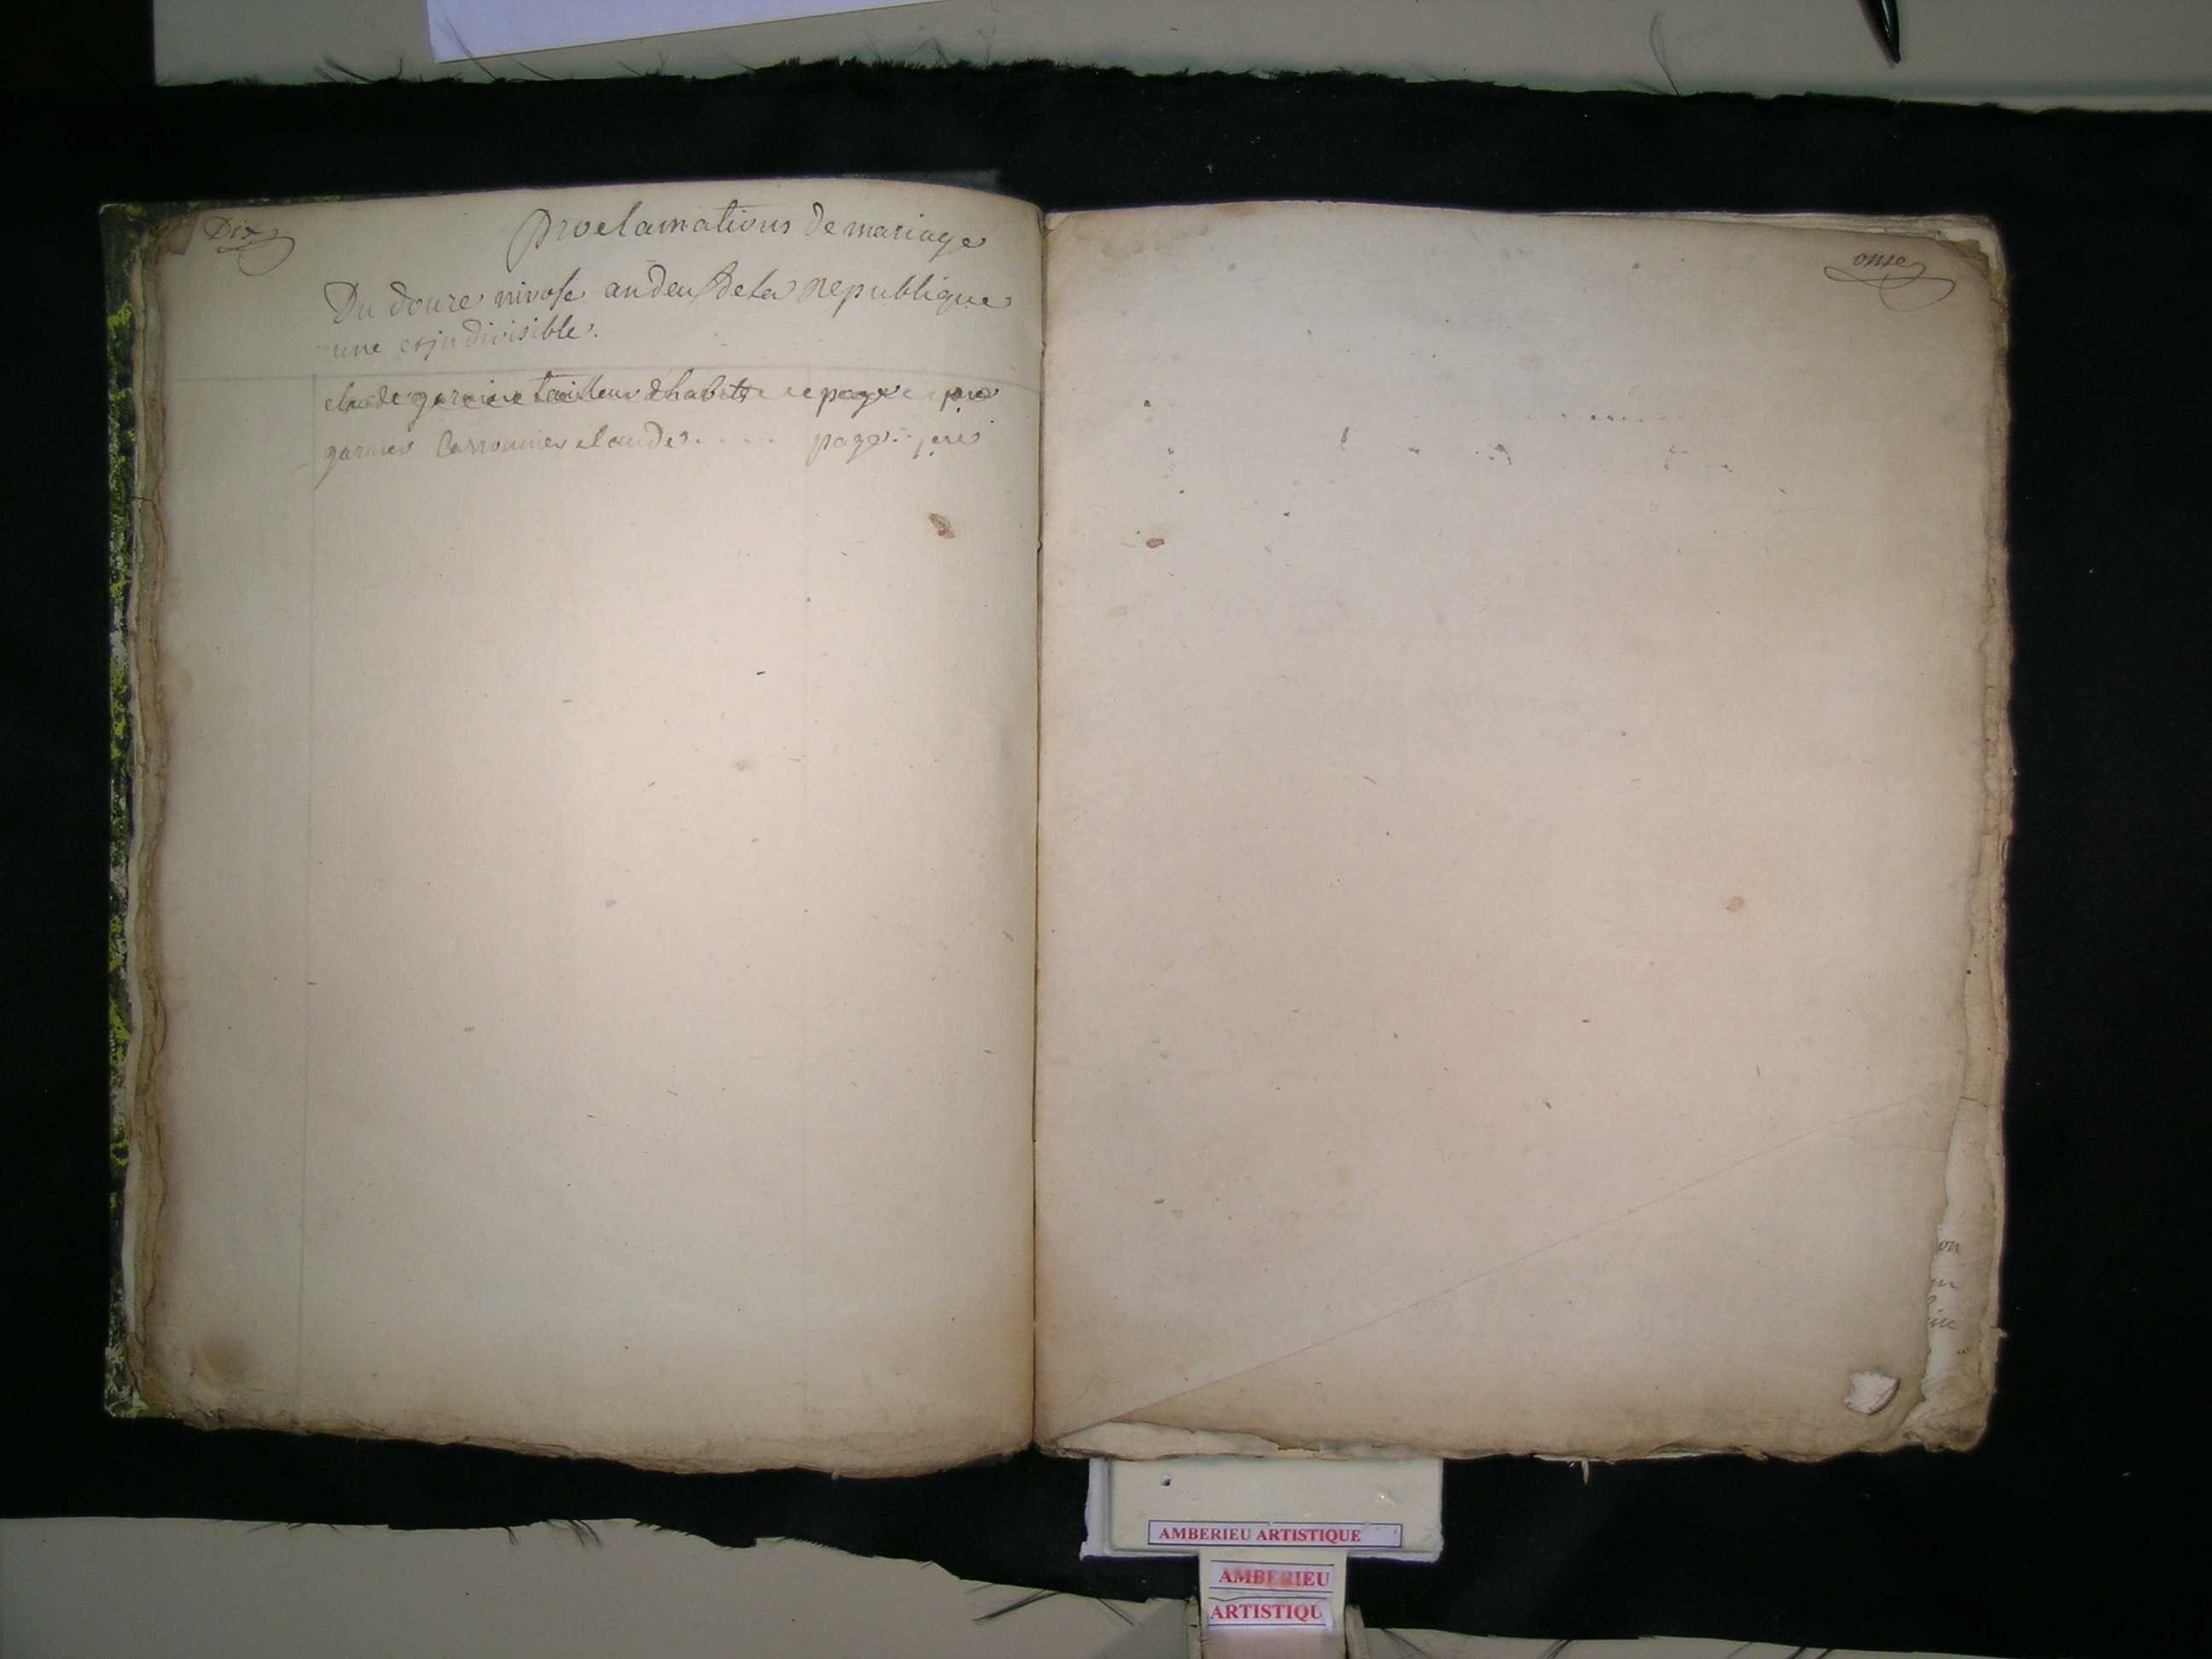 Dix
Proclamations de mariage
Du douze nivose an deux de la Republique
une et indivisible.
claude garnier tailleur d'habits page
garnier claude . . . . page
onze
on
AMBERIEU ARTISTIQUE
AMBERIEU
ARTISTIQU